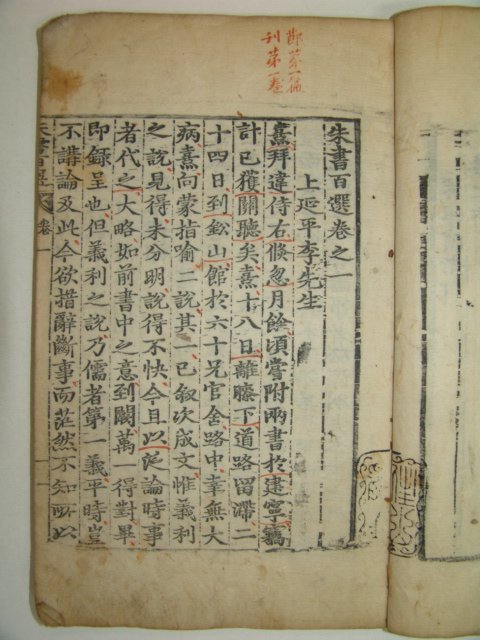 鄭蒙一篇
刊第一卷
朱書百選卷之一
上延平李先生
熹拜違侍右倏忽月餘頃嘗附兩書於建寧竊
計已獲關聽矣熹十八日離膝下道路留滯二
十四日到鉛山館於六十兄官舍路中幸無大
病熹向蒙指喻二說其一已敘次成文惟義利
之說見得未分明說得不快今且以泛論時事
者代之大略如前書中之意到闕萬一得對畢
即錄呈也但義利之說乃儒者第一義平時豈
不講論及此今欲措辭斷事而茫然不知所以
朱書百選 卷一